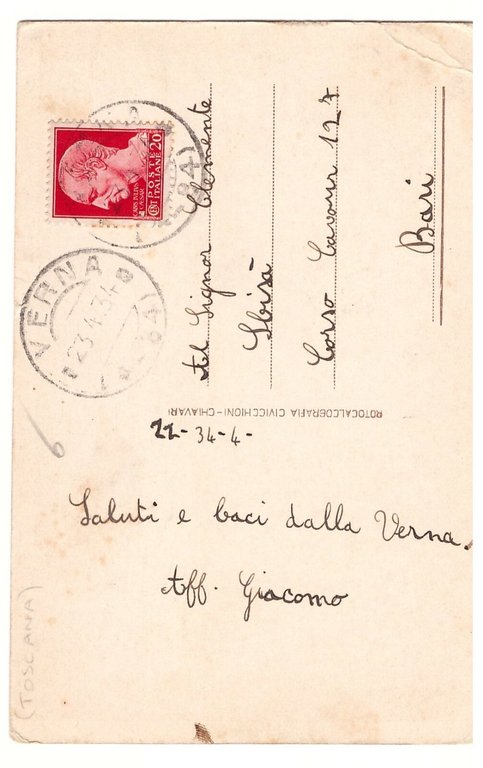 POSTE
ITALIANE
20
CENT
VERNA
23.4.34
Al Signor Clemente
Sbisà
Corso Cavour 127
Bari
ROTOCALCOGRAFIA CIVICCHIONI-CHIAVARI
22- 34-4-
Saluti e baci dalla Verna.
Aff. Giacomo
6
(TOSCANA)